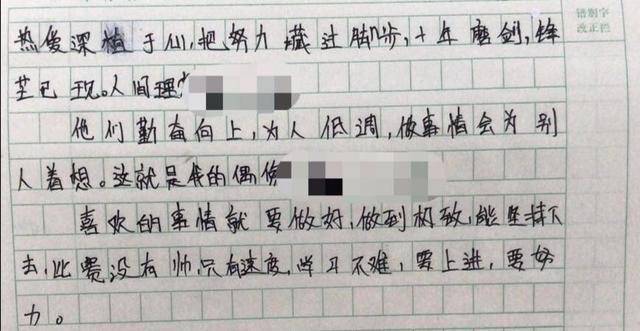 错别字
改正栏
热爱深植于心,把努力藏进脚步,十年磨剑,锋
芒已现。人间理
他们勤奋向上,为人低调,做事情会为别
人着想。这就是我的偶像
喜欢的事情就要做好,做到极致,能坚持下
去,比赛没有帅,只有速度,学习不难,要上进,要努
力。